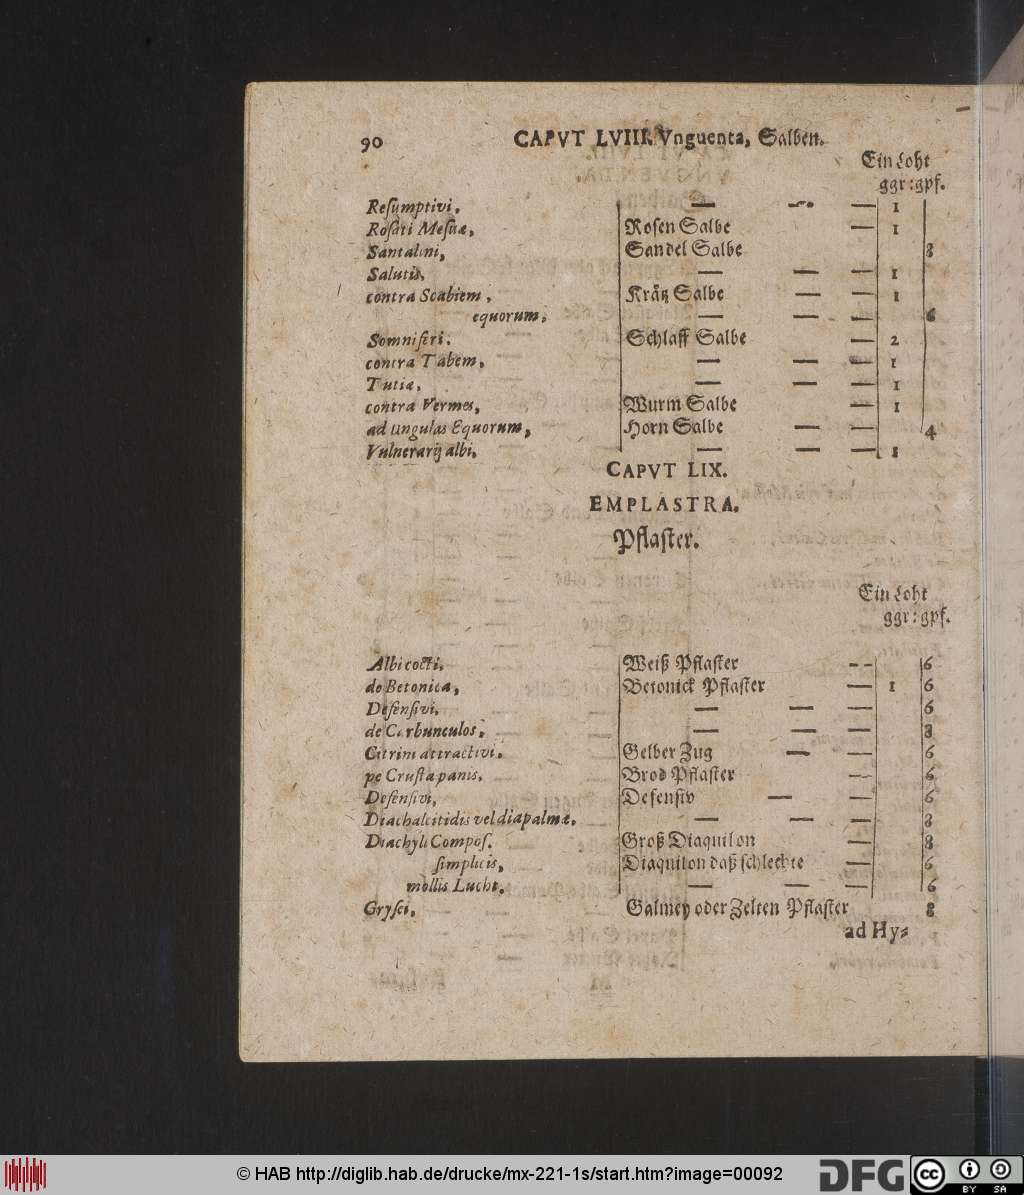 90 CAPVT LVIII. Vnguenta, Salben.
Ein Loht
ggr: gpf.
Reſumptivi. — — — 1
Roſati Meſuæ, Roſen Salbe — 1
Santalini, Sandel Salbe 8
Salutis, — — — 1
contra Scabiem, Krätz Salbe — — 1
equorum, — — — 6
Somniferi. Schlaff Salbe — 2
contra Tabem, — — — 1
Tutiæ, — — — 1
contra Vermes, Wurm Salbe — 1
ad ungulas Equorum, Horn Salbe — 4
Vulnerarij albi, — — — 1
CAPVT LIX.
EMPLASTRA.
Pflaſter.
Ein Loht
ggr: gpf.
Albi cocti. Weiß Pflaſter -- 6
de Betonica, Betonick Pflaſter — 1 6
Defenſivi, — — — 6
de Carbunculos, — — — 8
Citrini attractivi. Gelber Zug — — 6
pe Cruſta panis, Brod Pflaſter — 6
Defenſivi, Defenſiv — — 6
Diachalcitidis vel diapalmæ, — — — 8
Diachyli Compoſ. Groß Diaquilon — 8
ſimplicis, Diaquilon daß ſchlechte — 6
mollis Lucht. — — — 6
Gryſei, Galmey oder Zelten Pflaſter 8
ad Hy⸗
© HAB http://diglib.hab.de/drucke/mx-221-1s/start.htm?image=00092
DFG
cc
BY SA